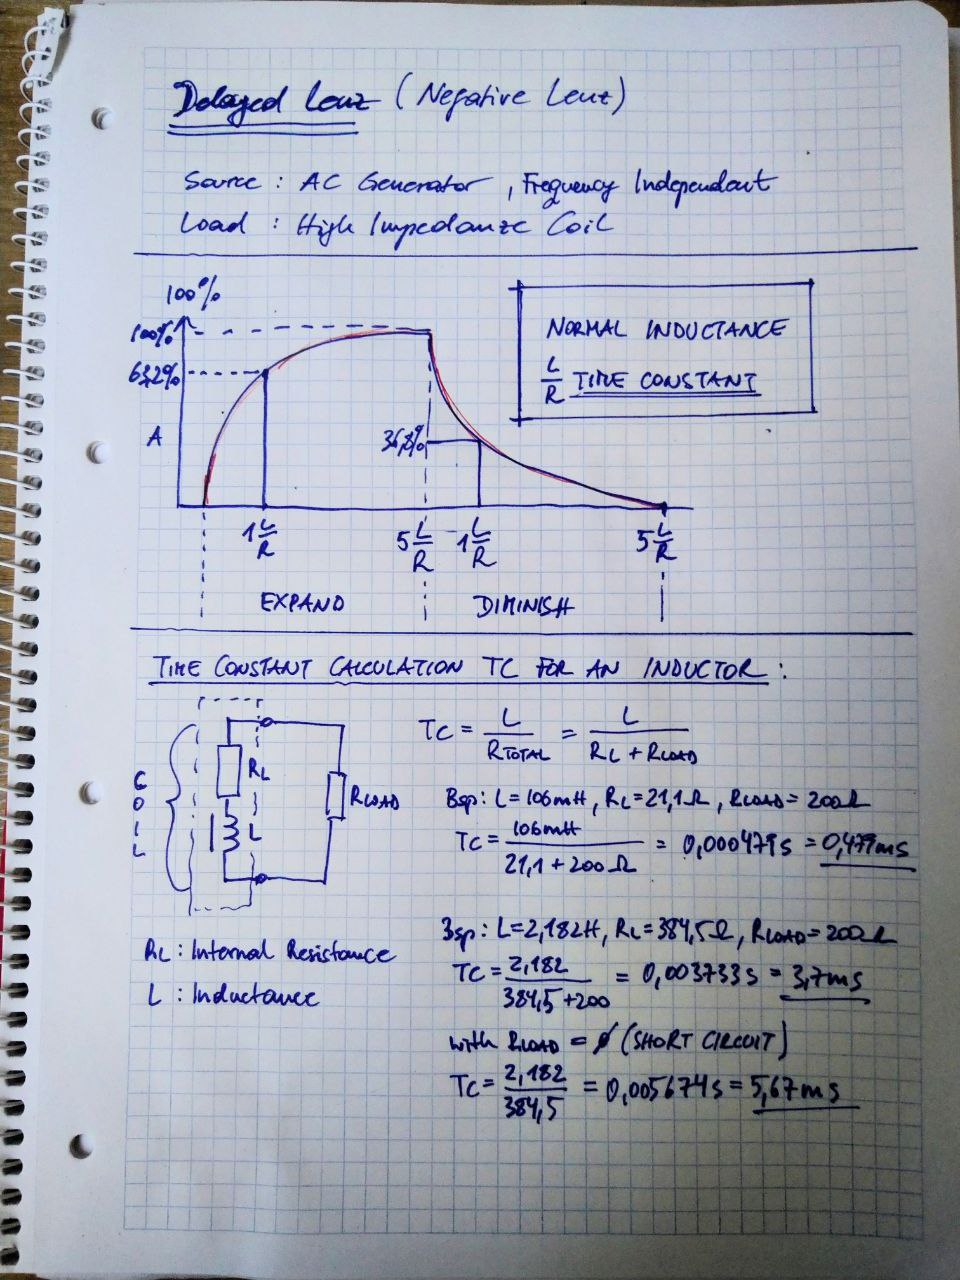 Delayed Lenz (Negative Lenz)
Source: AC Generator, Frequency Independent
Load: High Impedanze Coil
100%
100%
63,2%
A
36,8%
1 L/R
5 L/R
1 L/R
5 L/R
EXPAND
DIMINISH
NORMAL INDUCTANCE
L/R TIME CONSTANT
TIME CONSTANT CALCULATION TC FOR AN INDUCTOR:
COIL
RL
L
RLOAD
RL: Internal Resistance
L: Inductance
TC = L/RTOTAL = L/(RL + RLOAD)
Bsp: L=106mH, RL=21,1Ω, RLOAD=200Ω
TC = 106mH/(21,1+200Ω) = 0,000479s = 0,479ms
Bsp: L=2,182H, RL=384,5Ω, RLOAD=200Ω
TC = 2,182/(384,5+200) = 0,003733s = 3,7ms
with RLOAD = 0 (SHORT CIRCUIT)
TC = 2,182/384,5 = 0,005674s = 5,67ms